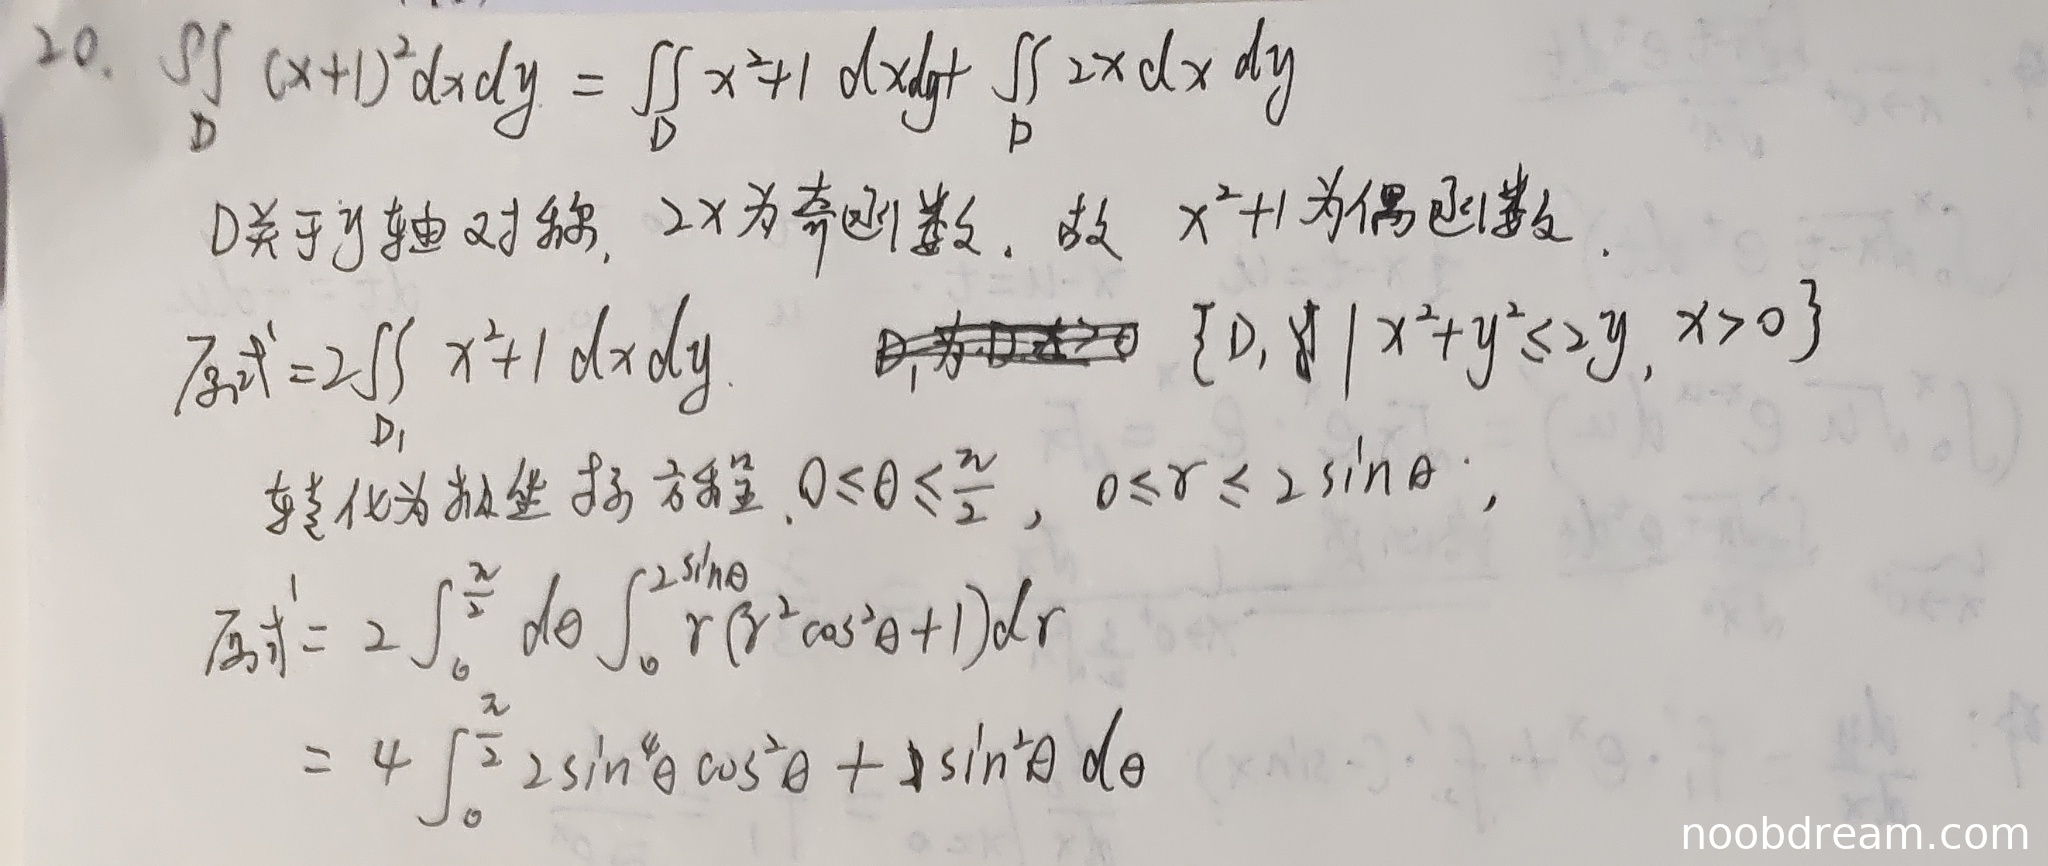 20. ∬_D (x+1)²dxdy = ∬_D x²+1 dxdy + ∬_D 2x dx dy
D关于y轴对称, 2x为奇函数. 故 x²+1为偶函数.
原式=2∬_{D₁} x²+1 dxdy. {D₁ | x²+y²≤2y, x>0}
转化为极坐标方程. 0≤θ≤π/2, 0≤r≤2sinθ;
原式= 2∫₀^{π/2} dθ ∫₀^{2sinθ} r(r²cos²θ+1)dr
= 4∫₀^{π/2} 2sin⁴θcos²θ + sin²θ dθ
noobdream.com